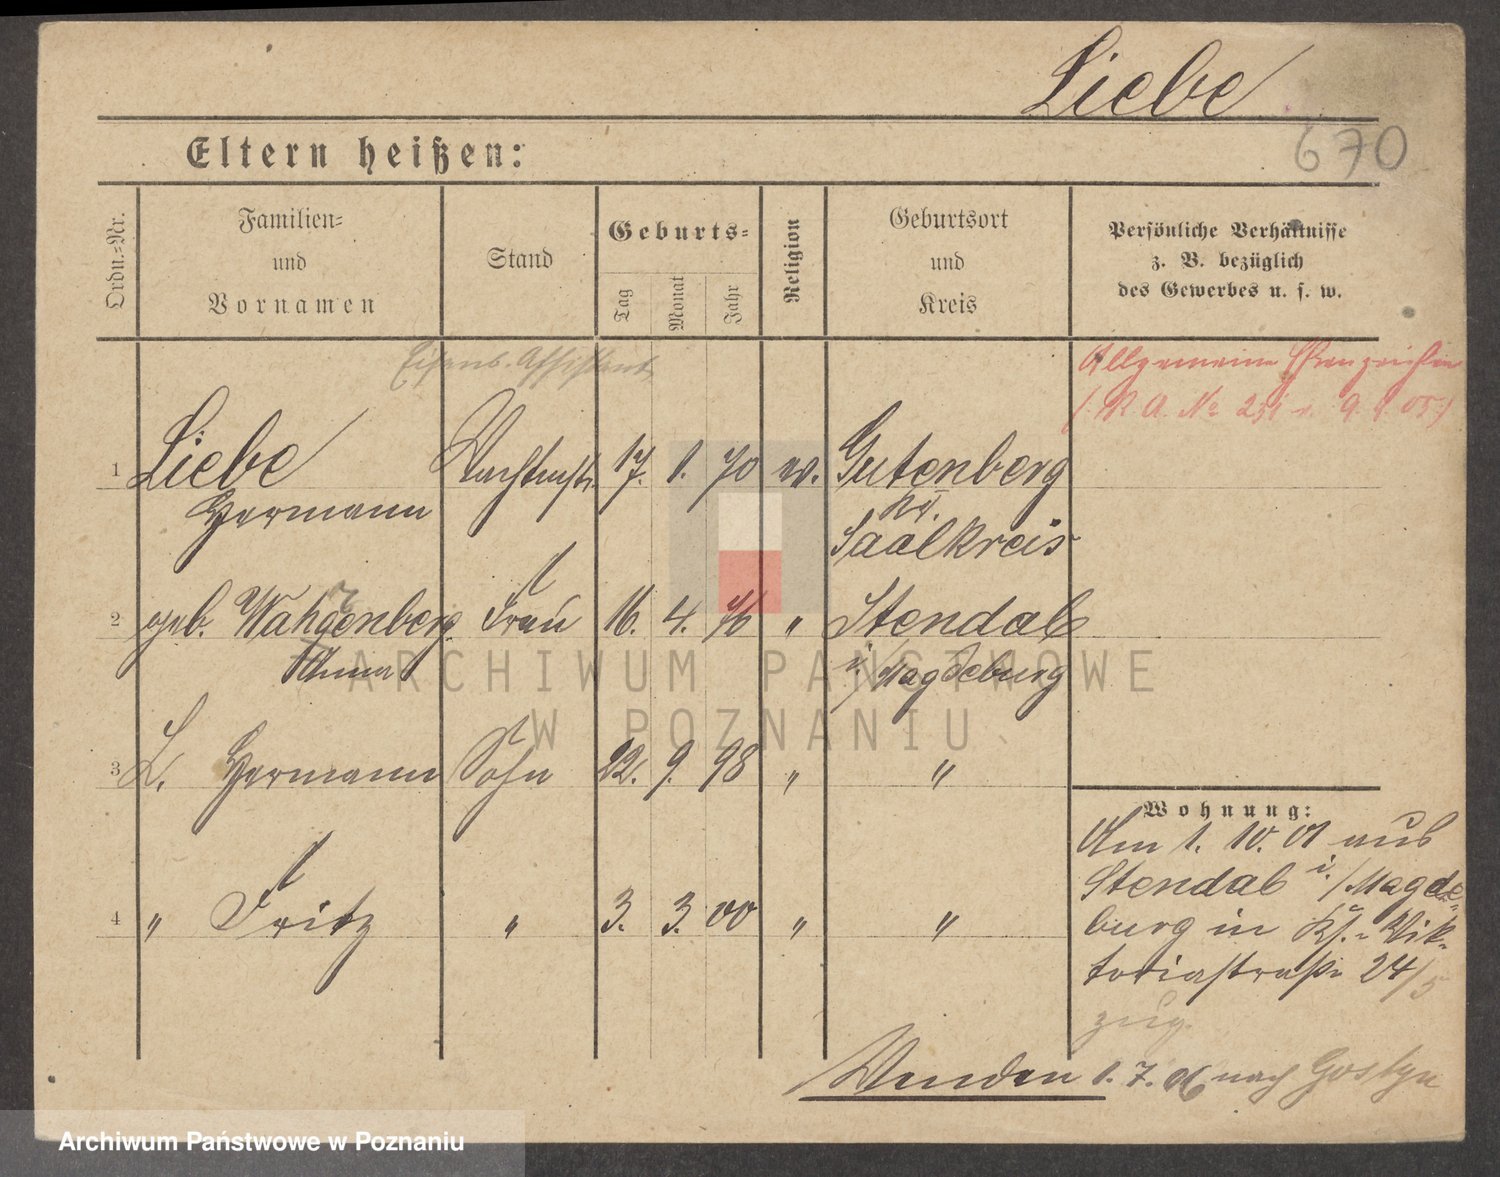 Liebe
670
Eltern heißen:
Ordn.-Nr.
Familien-
und
Vornamen
Stand
Geburts-
Tag
Monat
Jahr
Religion
Geburtsort
und
Kreis
Persönliche Verhältnisse
z. B. bezüglich
des Gewerbes u. s. w.
Eisenb. Assistent
Allgemeine
1 Liebe 17. 1. 70 ev. Gutenberg
Hermann Kr.
Saalkreis
2 geb. Wahgenberg Frau 16. 4. 76 " Stendal
Anna i/Magdeburg
3 L. Hermann Sohn 22. 9. 98 " "
4 " Fritz " 3. 3. 00 " "
Wohnung:
Am 1. 10. 01 aus
Stendal i./Magde-
burg in Ks.- Vik-
toriastraße 24/5
zug.
Wenden 1. 7. 06 nach Gostyn
ARCHIWUM PAŃSTWOWE
W POZNANIU
Archiwum Państwowe w Poznaniu